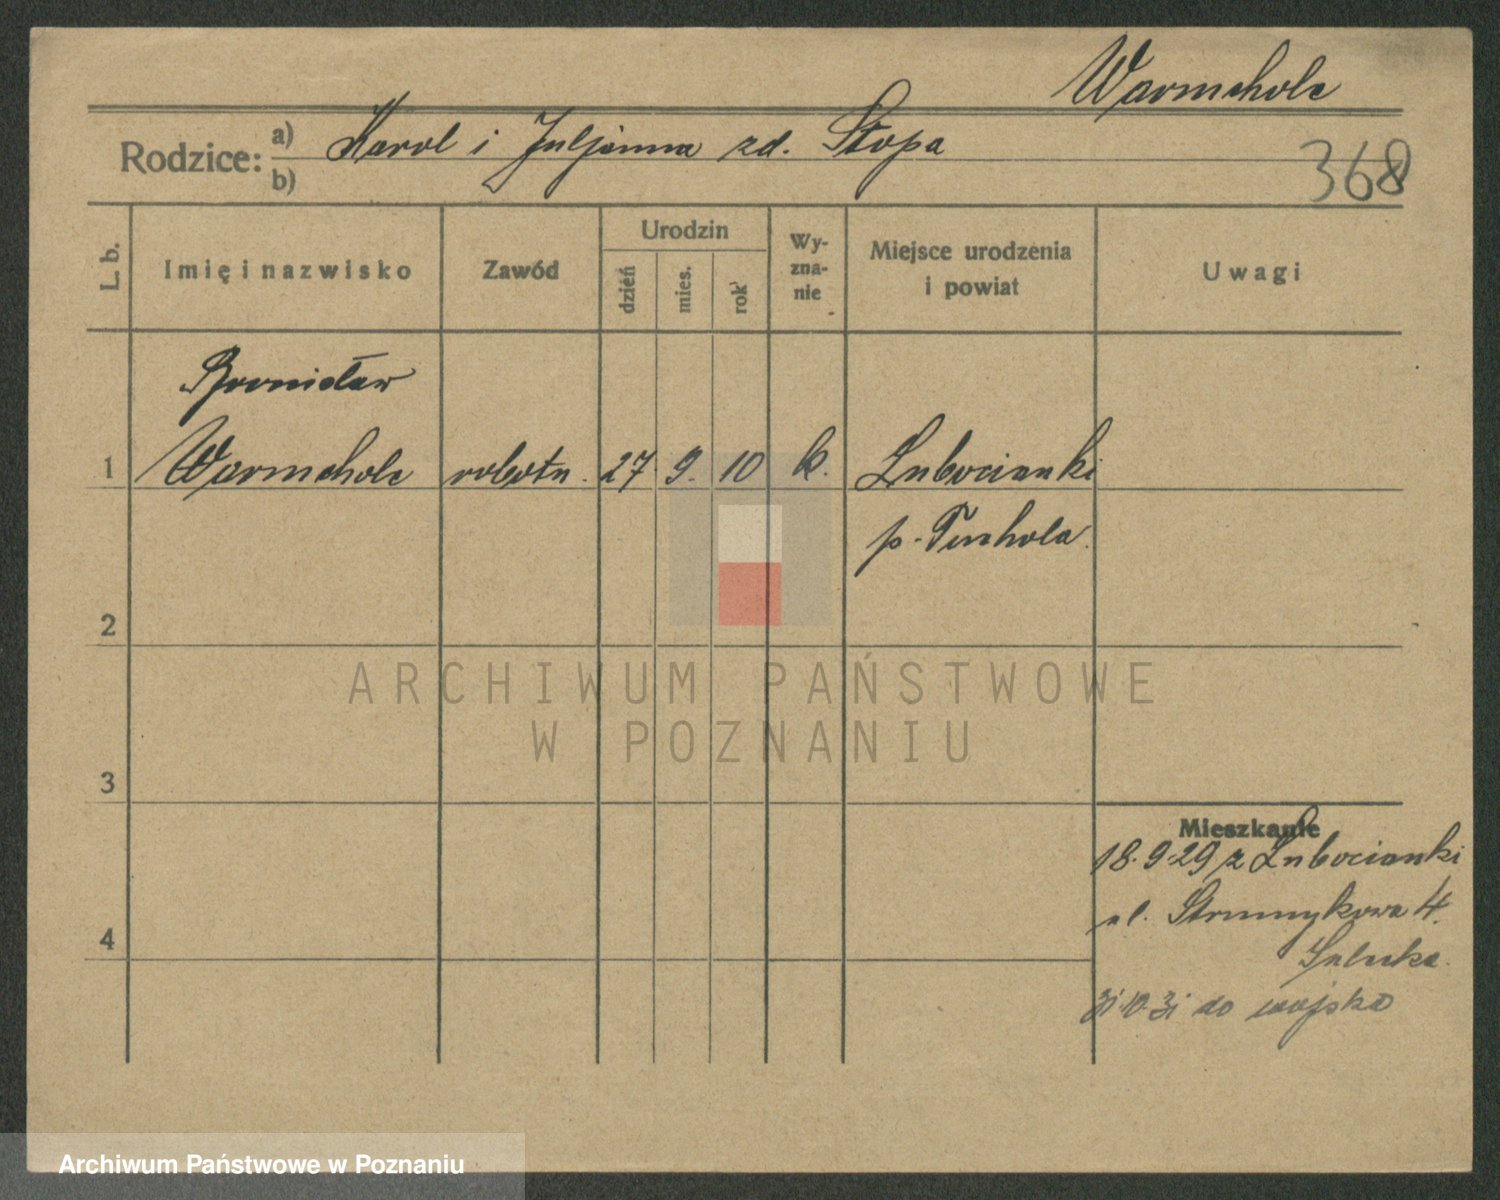 Warmcholc
Rodzice: a) Karol i Juljanna zd. Stopa
b)
368
L. b.
Imię i nazwisko
Zawód
Urodzin
dzień
mies.
rok
Wy-
zna-
nie
Miejsce urodzenia
i powiat
Uwagi
Bronisław
1 Warmcholc robotn. 27 9. 10 k. Lubocianki
p. Tuchola
2
3
4
Mieszkanie
18.9.29 z Lubocianki
ul. Strumykowa 4.
31.10.31 do wojska
ARCHIWUM PAŃSTWOWE
W POZNANIU
Archiwum Państwowe w Poznaniu